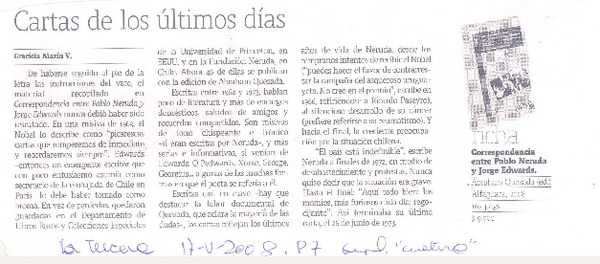 Cartas de los últimos días
Graciela Marín V.
De haberse seguido al pie de la
letra las instrucciones del vate, el
material recopilado en
Correspondencia entre Pablo Neruda y
Jorge Edwards nunca debió haber sido
rescatado. En una misiva de 1963, el
Nobel lo describe como "picarescas
cartas que romperemos de inmediato y
recordaremos siempre". Edwards
-entonces un emergente escritor que
con poco entusiasmo asumía como
secretario de la embajada de Chile en
París- lo debe haber tomado como
broma. En vez de perderlas, quedaron
guardadas en el Departamento de
Libros Raros y Colecciones Especiales
de la Universidad de Princeton, en
EEUU, y en la Fundación Neruda, en
Chile. Ahora 42 de ellas se publican
con la edición de Abraham Quezada.
Escritas entre 1962 y 1973, hablan
poco de literatura y más de encargos
domésticos, saludos de amigos y
recuerdos compartidos. Son misivas
de tono chispeante e irónico
-si eran escritas por Neruda-, y más
serias e informativas, si venían de
Edwards. O Pedwards, Xorse, George,
Georgius... a gunas de las muchas for-
mas en que el poeta se refería a él.
Escritas casi en clave -hay que
destacar la labor documental de
Quezada, que aclara la mayoría de las
dudas-, las cartas reflejan los últimos
años de vida de Neruda, desde los
tempranos intentos de recibir el Nobel
("puedes hacer el favor de contrarres-
tar la campaña del asqueroso uruguа-
yo. No creo en el premio", escribe en
1966, refiriéndose a Ricardo Paseyro),
al silencioso desarrollo de su cáncer
(prefiere referirse a su reumatismo). Y
hacia el final, la creciente preocupa-
ción por la situación chilena.
"El país está indefinible", escribe
Neruda a finales de 1972, en medio de
desabastecimiento y protestas. Nunca
quiso decir que la situación era grave.
Hasta el final: "Aquí todo bien: los
demonios, más furiosos cada día rego-
cijante". Así terminaba su última
carta, el 26 de junio de 1973.
ficha
Correspondencia
entre Pablo Neruda
y Jorge Edwards.
Abraham Quezada (ed.)
Alfaguara, 2008
págs.
La Tercera 17-V-2008. P7 supl. "cultura"